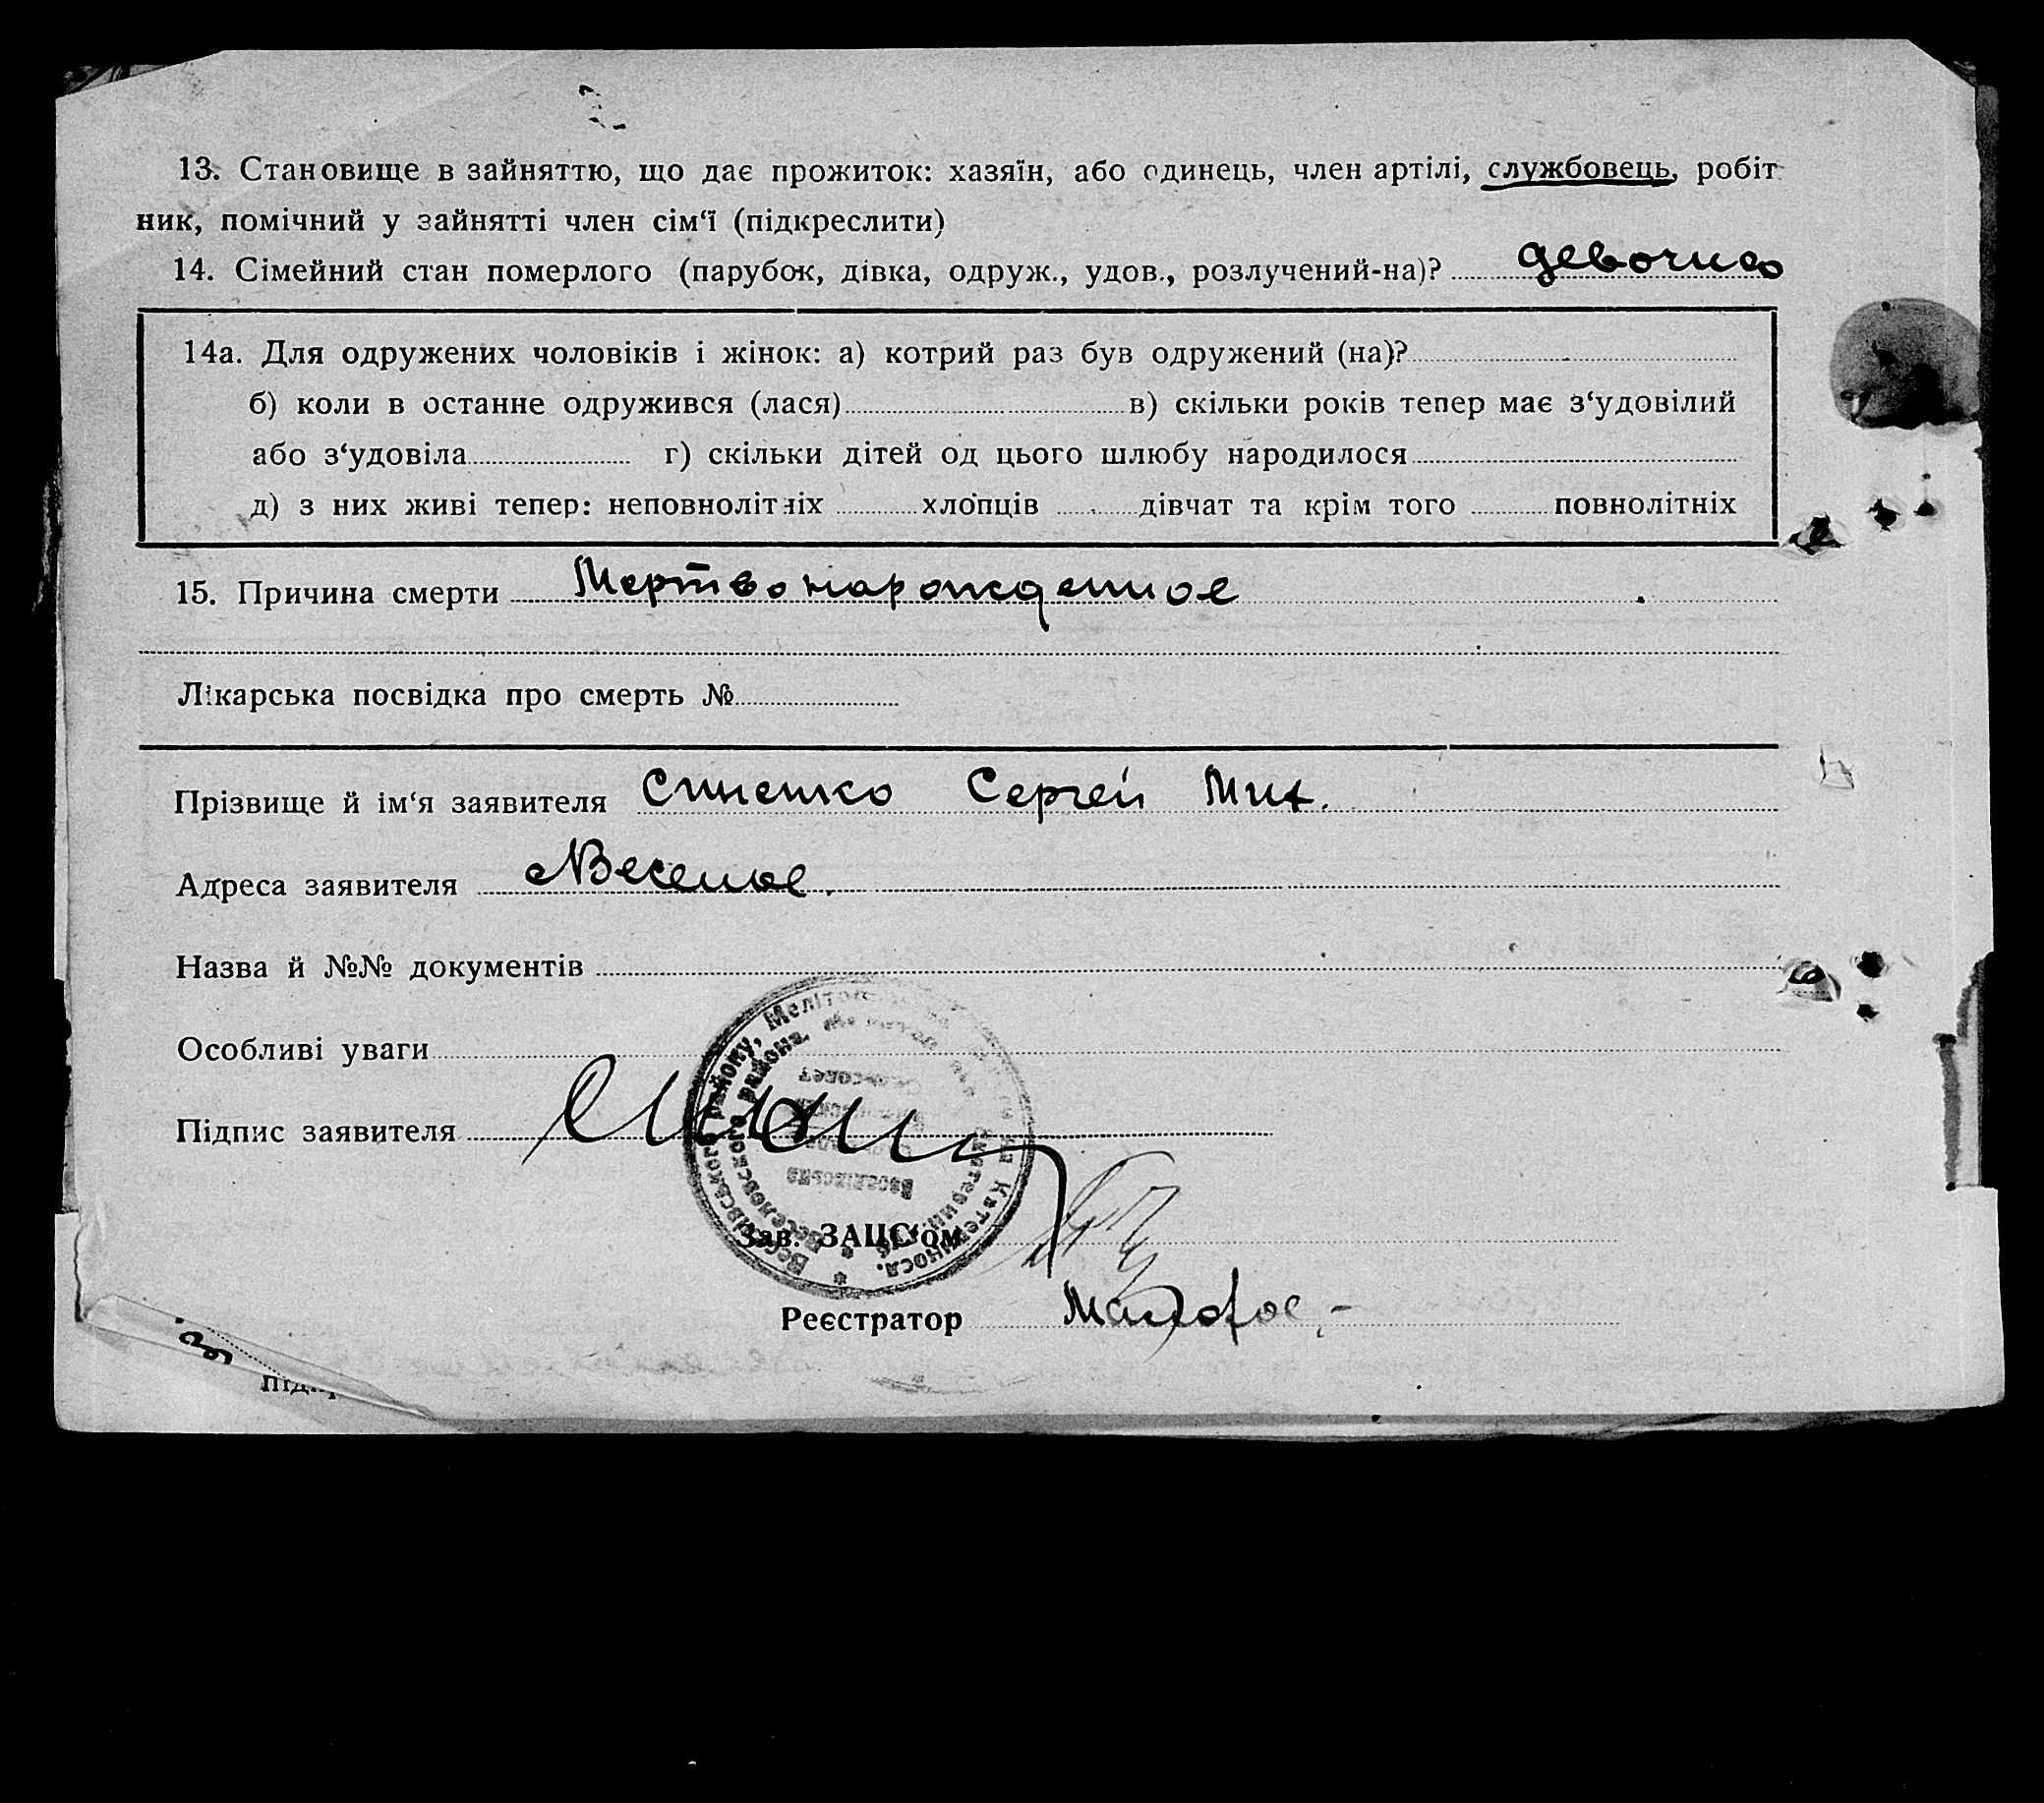 13. Становище в зайняттю, що дає прожиток: хазяїн, або одинець, член артілі, службовець, робіт-
ник, помічний у зайнятті член сім‘ї (підкреслити)
14. Сімейний стан померлого (парубок, дівка, одруж., удов., розлучений-на)? девочка
14а. Для одружених чоловіків і жінок: а) котрий раз був одружений (на)?
б) коли в останнє одружився (лася) в) скільки років тепер має з‘удовілий
або з‘удовіла г) скільки дітей од цього шлюбу народилося
д) з них живі тепер: неповнолітніх хлопців дівчат та крім того повнолітніх
15. Причина смерти Мертворожденное
Лікарська посвідка про смерть №
Прізвище й ім‘я заявителя Синенко Сергей Мих.
Адреса заявителя Веселое.
Назва й №№ документів
Особливі уваги
Підпис заявителя
Зав. ЗАЦС‘ом
Реєстратор